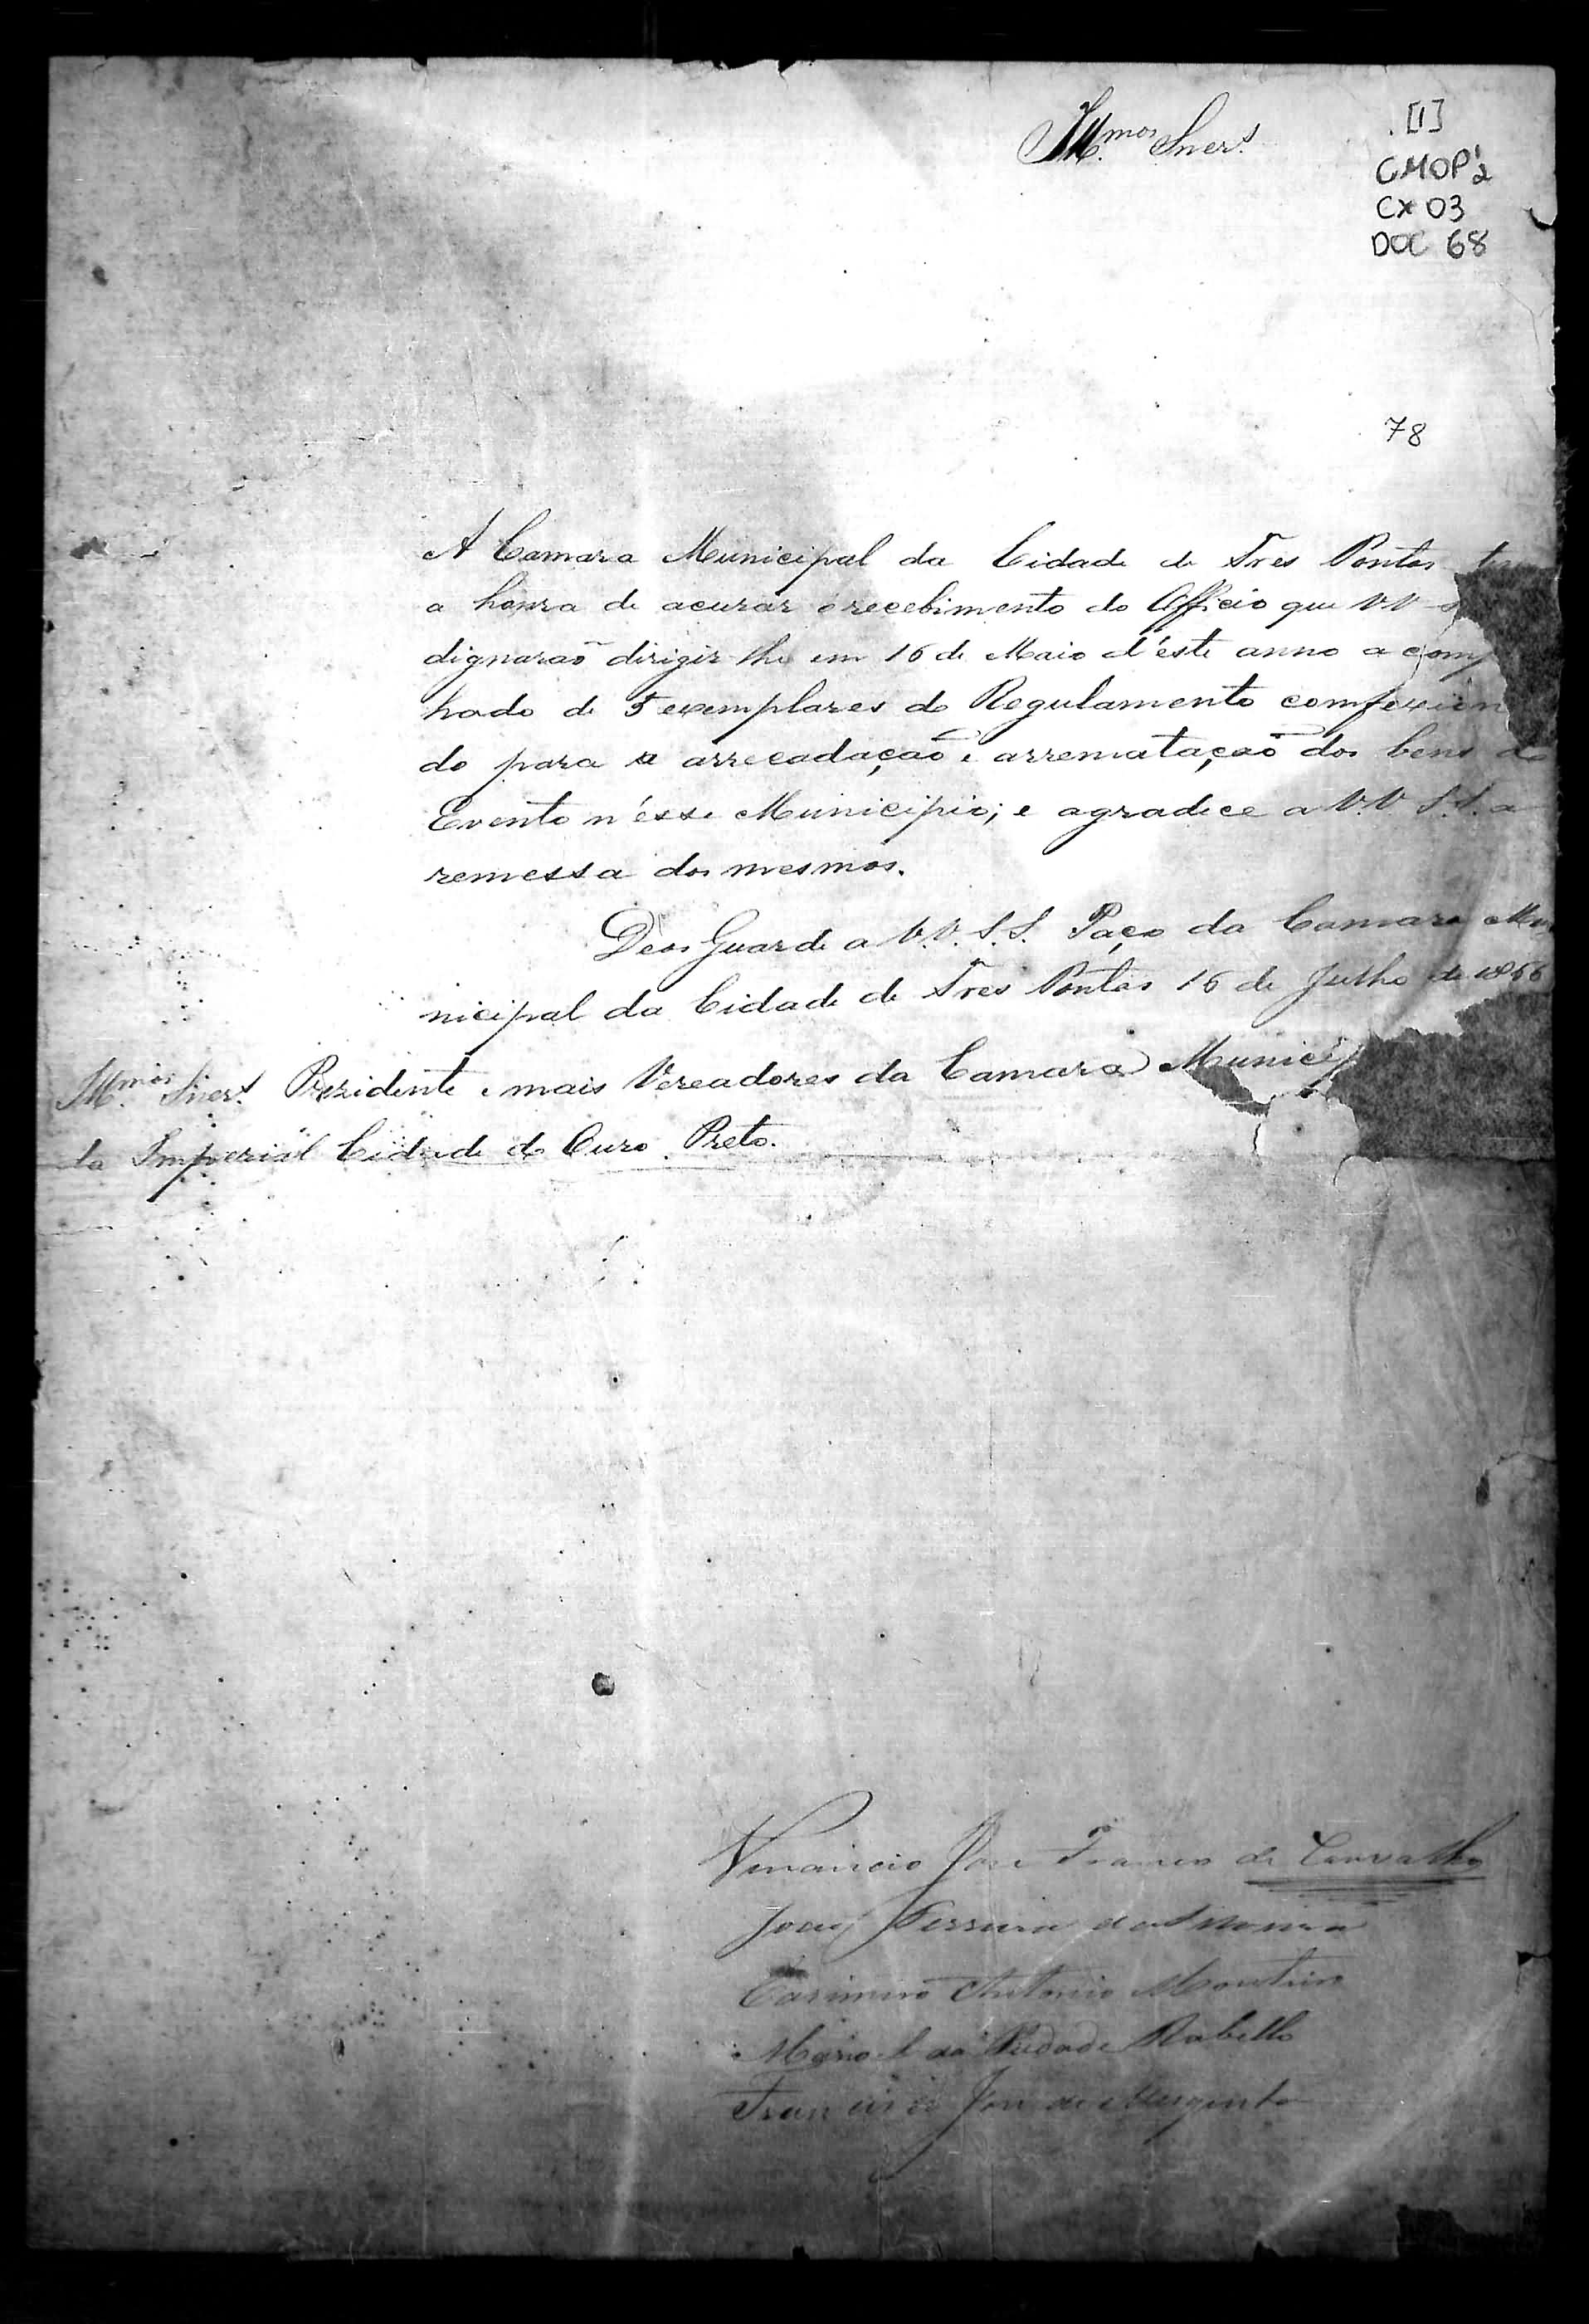 Ill.mos Sners.
[1]
CMOP'2
CX 03
DOC 68
78
A Camara Municipal da Cidade de Tres Pontas
a honra de acuzar o recebimento do Officio que VV
dignaraõ dirigir lhe em 16 de Maio d'éste anno a comp
hado de 5 exemplares do Regulamento comfexion
do para a arrecadaçaõ e arremataçaõ dos bens do
Evento n'ésse Municipio; e agradece a V.V. S.S. a
remessa dos mesmos.
Deos Guarde a V.V. S.S. Paço da Camara Mu
nicipal da Cidade de Tres Pontas 16 de Julho de 1866
Ill.mos Sners. Prezidente e mais Vereadores da Camara Municip
da Imperial Cidade do Ouro Preto.
Venancio José Franco de Carvalho
João Ferreira da
Carimiro Antonio Monteiro
Manoel da Piedade Rabello
Francisco José de